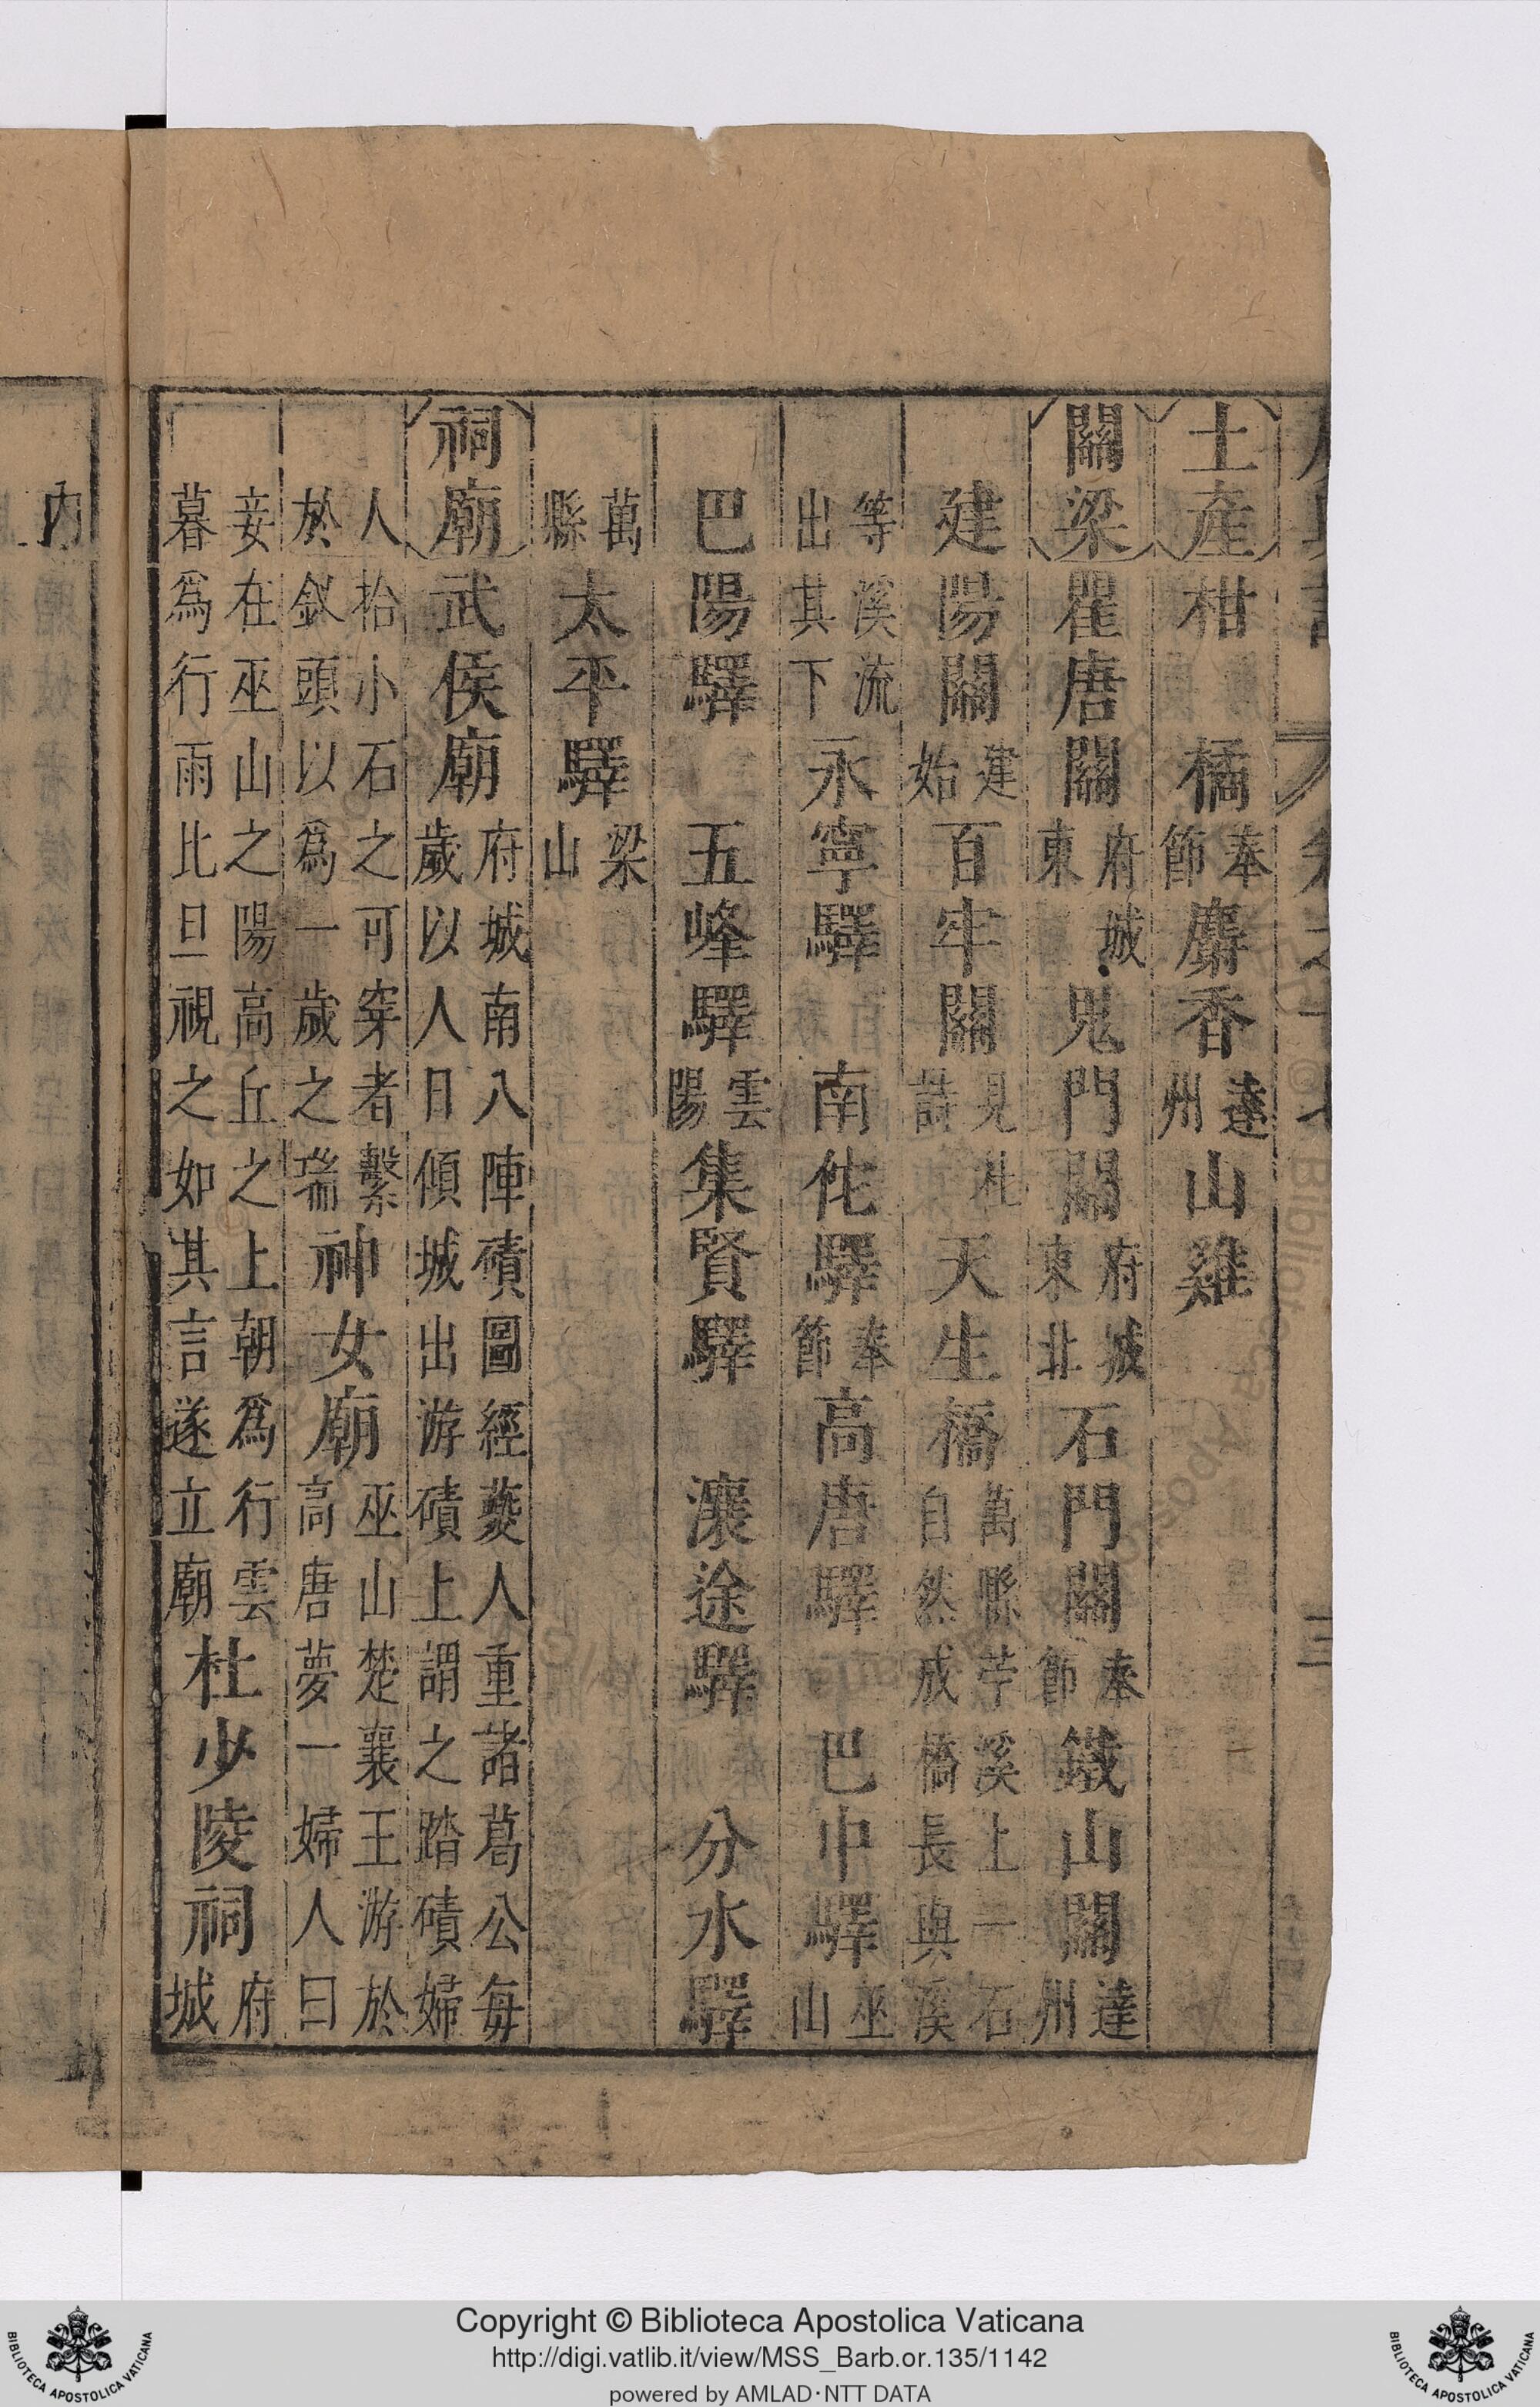 土產柑 橘奉節麝香達州山雞
關梁瞿唐關府城東鬼門關府城東北石門關奉節鐵山關達州
建陽關建始百牢關見杜詩天生橋萬縣苧溪上一石自然成橋長與溪
等溪流出其下永寧驛 南佗驛奉節高唐驛 巴中驛巫山
巴陽驛 五峰驛雲陽集賢驛 瀼途驛 分水驛
萬縣太平驛梁山
祠廟武侯廟府城南八陣磧圖經夔人重諸葛公每歲以人日傾城出游磧上謂之踏磧婦
人拾小石之可穿者繫於釵頭以爲一歲之瑞神女廟巫山楚襄王游於高唐夢一婦人曰
妾在巫山之陽高丘之上朝爲行雲暮爲行雨比旦視之如其言遂立廟杜少陵祠府城
內
Copyright © Biblioteca Apostolica Vaticana
http://digi.vatlib.it/view/MSS_Barb.or.135/1142
powered by AMLAD·NTT DATA
BIBLIOTECA APOSTOLICA VATICANA
BIBLIOTECA APOSTOLICA VATICANA